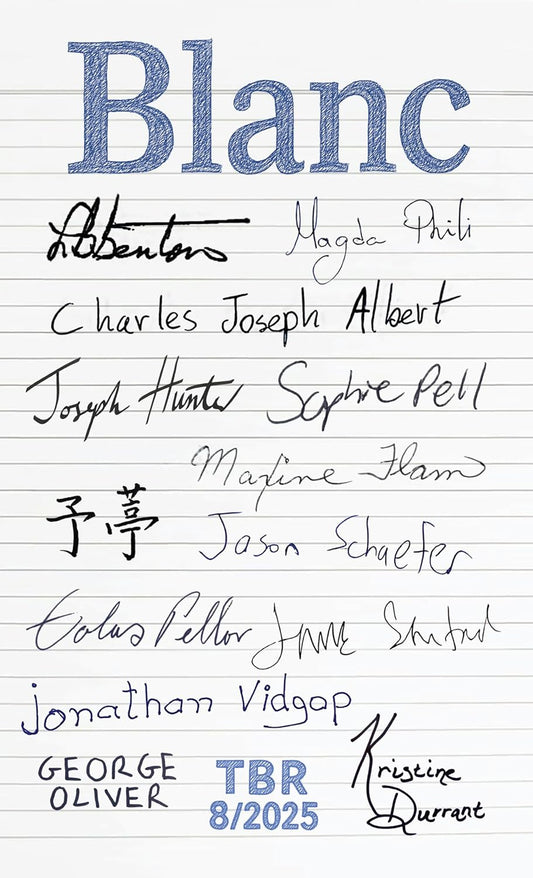 Blanc
Magda Phili
Charles Joseph Albert
Joseph Hunter Sophie Pell
Maxine Flam
予葶
Jason Schaefer
Eolas Pellor
Jonathan Vidgop
GEORGE
OLIVER
TBR
8/2025
Kristine
Durrant